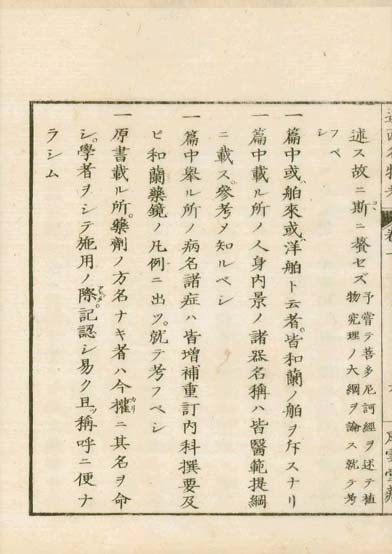 述ス故ニ斯ニ贅セズ 予嘗テ菩多尼訶經ヲ述テ植
物究理ノ大綱ヲ論ス就テ考
フベ
シ
一 篇中或舶來或洋舶ト云者。皆和蘭ノ舶ヲ斥スナリ
一 篇中載ル所ノ人身内景ノ諸器名稱ハ皆醫範提綱
ニ載ス。參考メ知ルベシ
一 篇中擧ル所ノ病名諸症ハ皆増補重訂内科撰要及
ビ和蘭藥鏡ノ凡例ニ出ツ。就テ考フベシ
一 原書載ル所。藥劑ノ方名ナキ者ハ今權ニ其名ヲ命
シ。學者ヲシテ施用ノ際。記認シ易ク且ッ稱呼ニ便ナ
ラシム